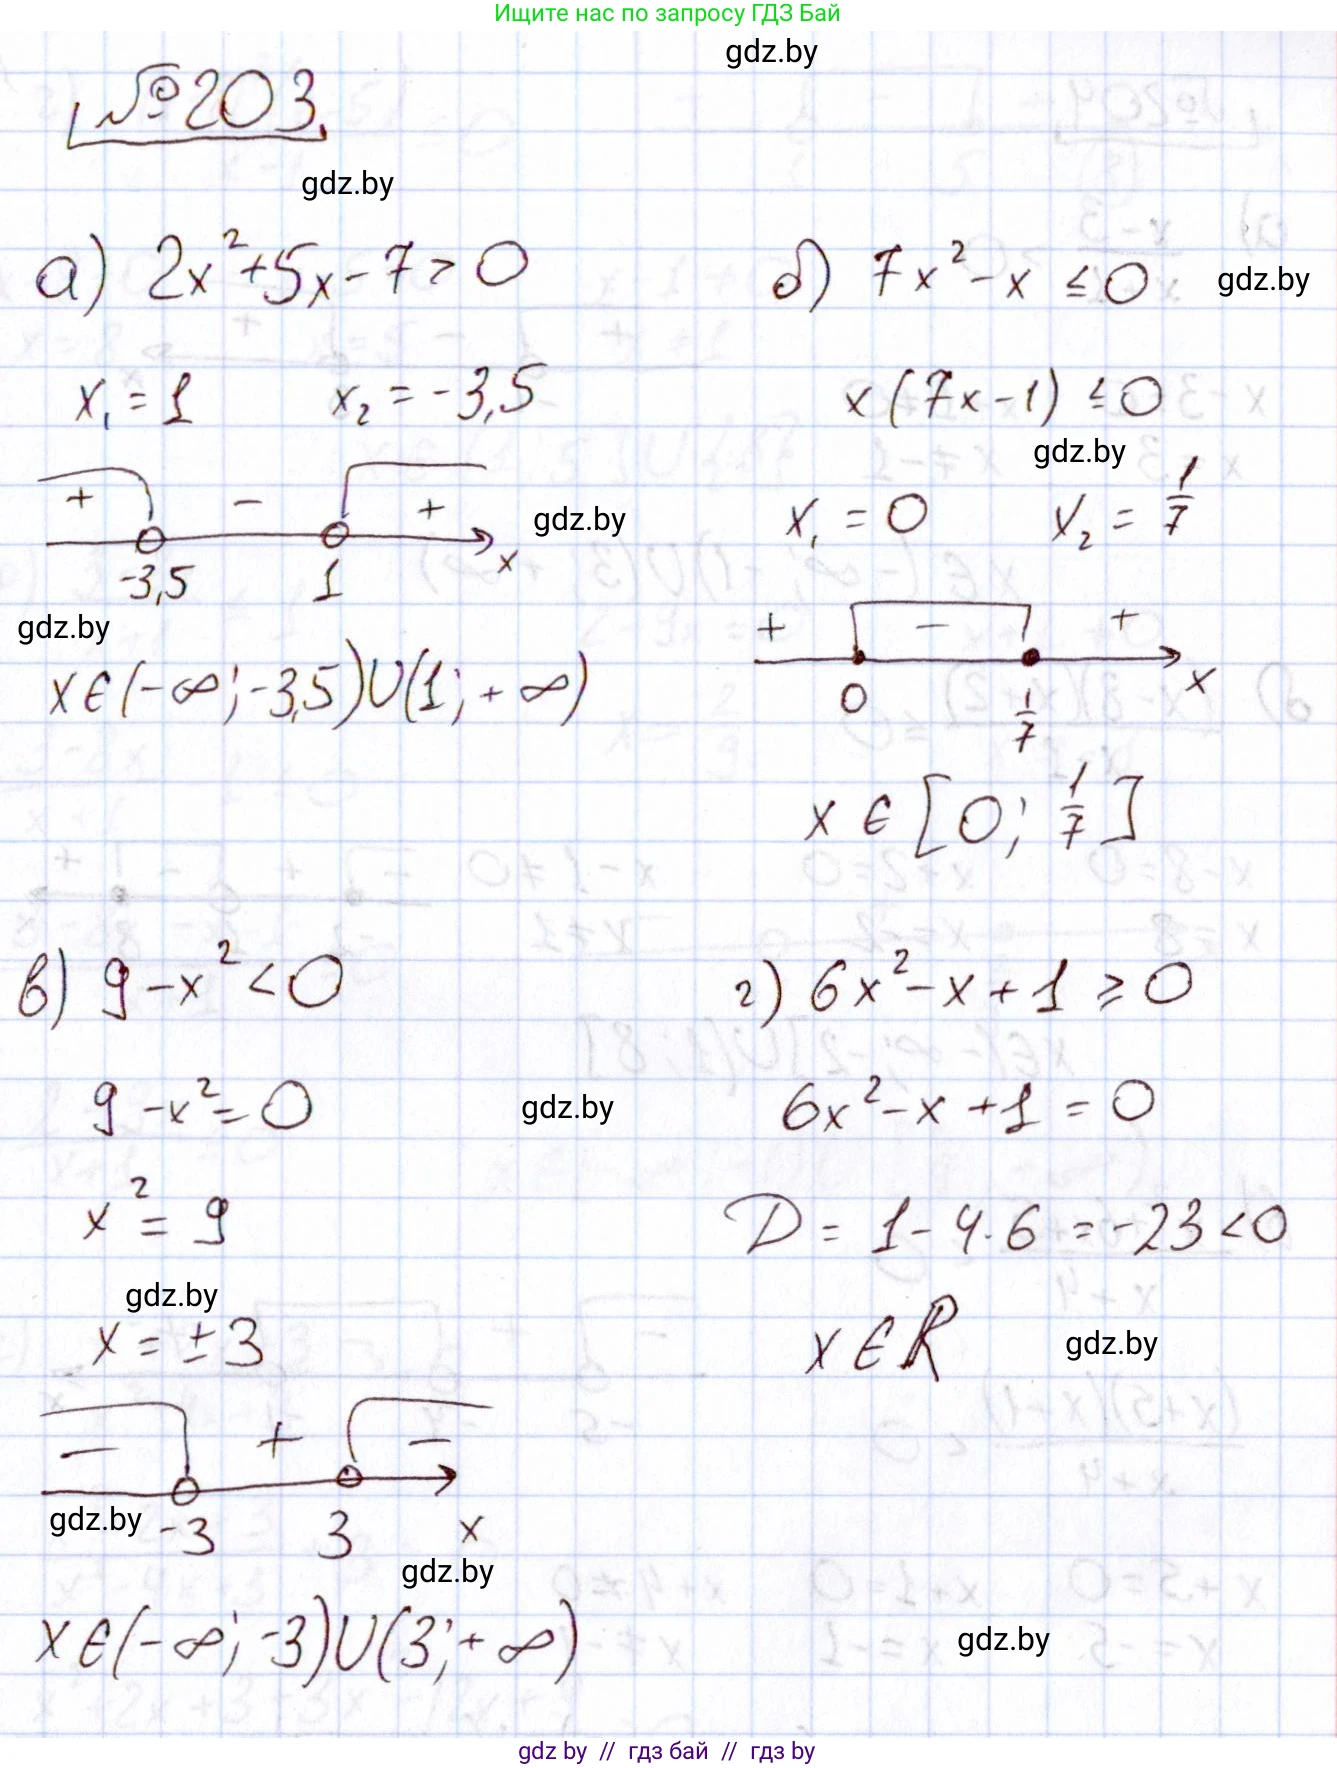 Ищите нас по запросу ГДЗ Бай
gdz.by
№203
gdz.by
а) 2x²+5x-7>0
x₁=1 x₂=-3,5
+ - +
gdz.by
-3,5 1 x
gdz.by
x∈(-∞;-3,5)∪(1;+∞)
б) 7x²-x≤0
gdz.by
x(7x-1)≤0
gdz.by
x₁=0 x₂=1/7
+ - +
0 1/7 x
x∈[0;1/7]
в) 9-x²<0
9-x²=0
gdz.by
x²=9
gdz.by
x=±3
- + -
gdz.by
-3 3 x
gdz.by
x∈(-∞;-3)∪(3;+∞)
г) 6x²-x+1≥0
6x²-x+1=0
D=1-4·6=-23<0
x∈R
gdz.by
gdz.by
gdz by // гдз бай // гдз by